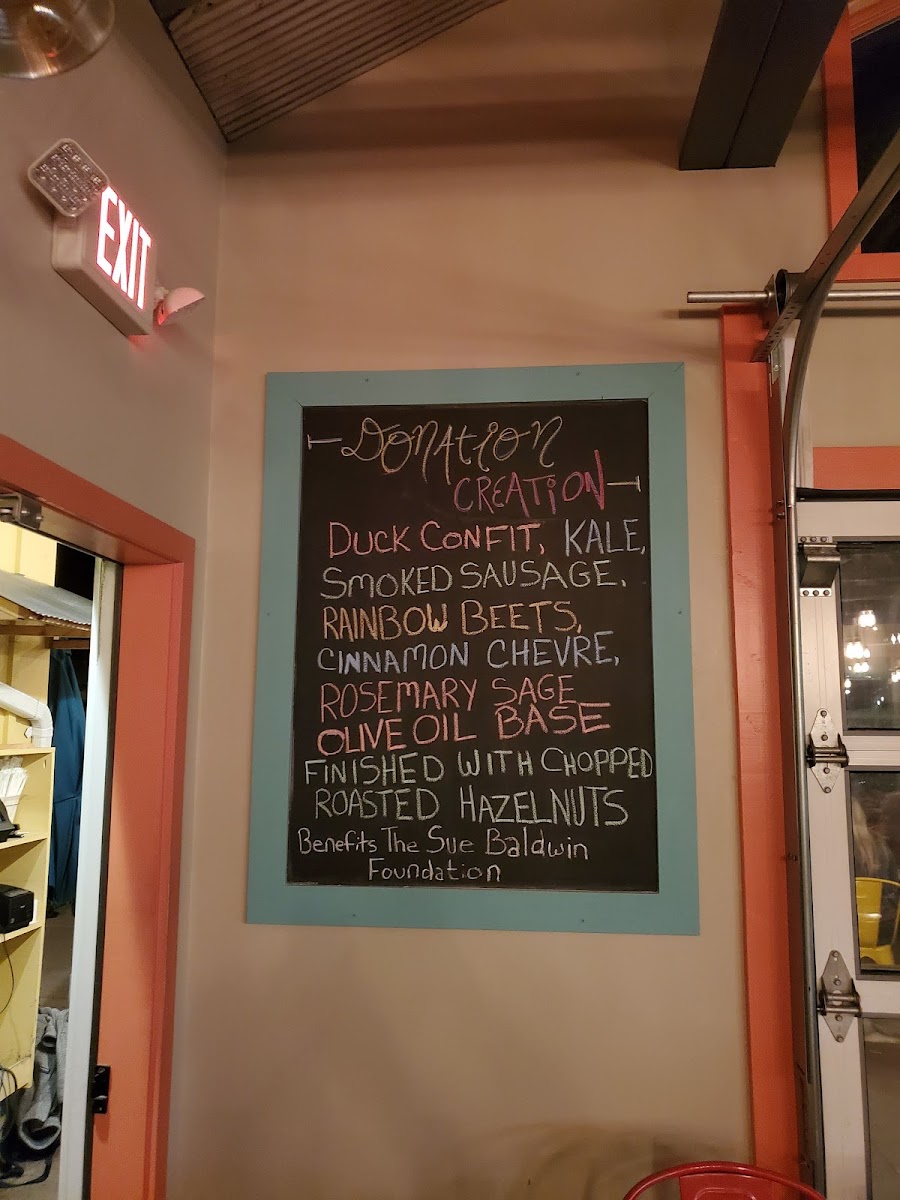 EXIT
DONATION
CREATION
DUCK CONFIT, KALE,
SMOKED SAUSAGE,
RAINBOW BEETS,
CINNAMON CHEVRE,
ROSEMARY SAGE
OLIVE OIL BASE
FINISHED WITH CHOPPED
ROASTED HAZELNUTS
Benefits The Sue Baldwin
Foundation